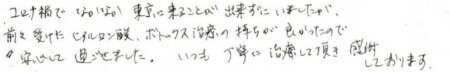 コロナ禍で なかなか 東京に来ることが 出来ずにいましたが、
前に受けた ヒアルロン酸、ボトックス治療の持ちが良かったので
安心して 過ごせました。 いつも 丁寧に 治療して頂き 感謝
しております。